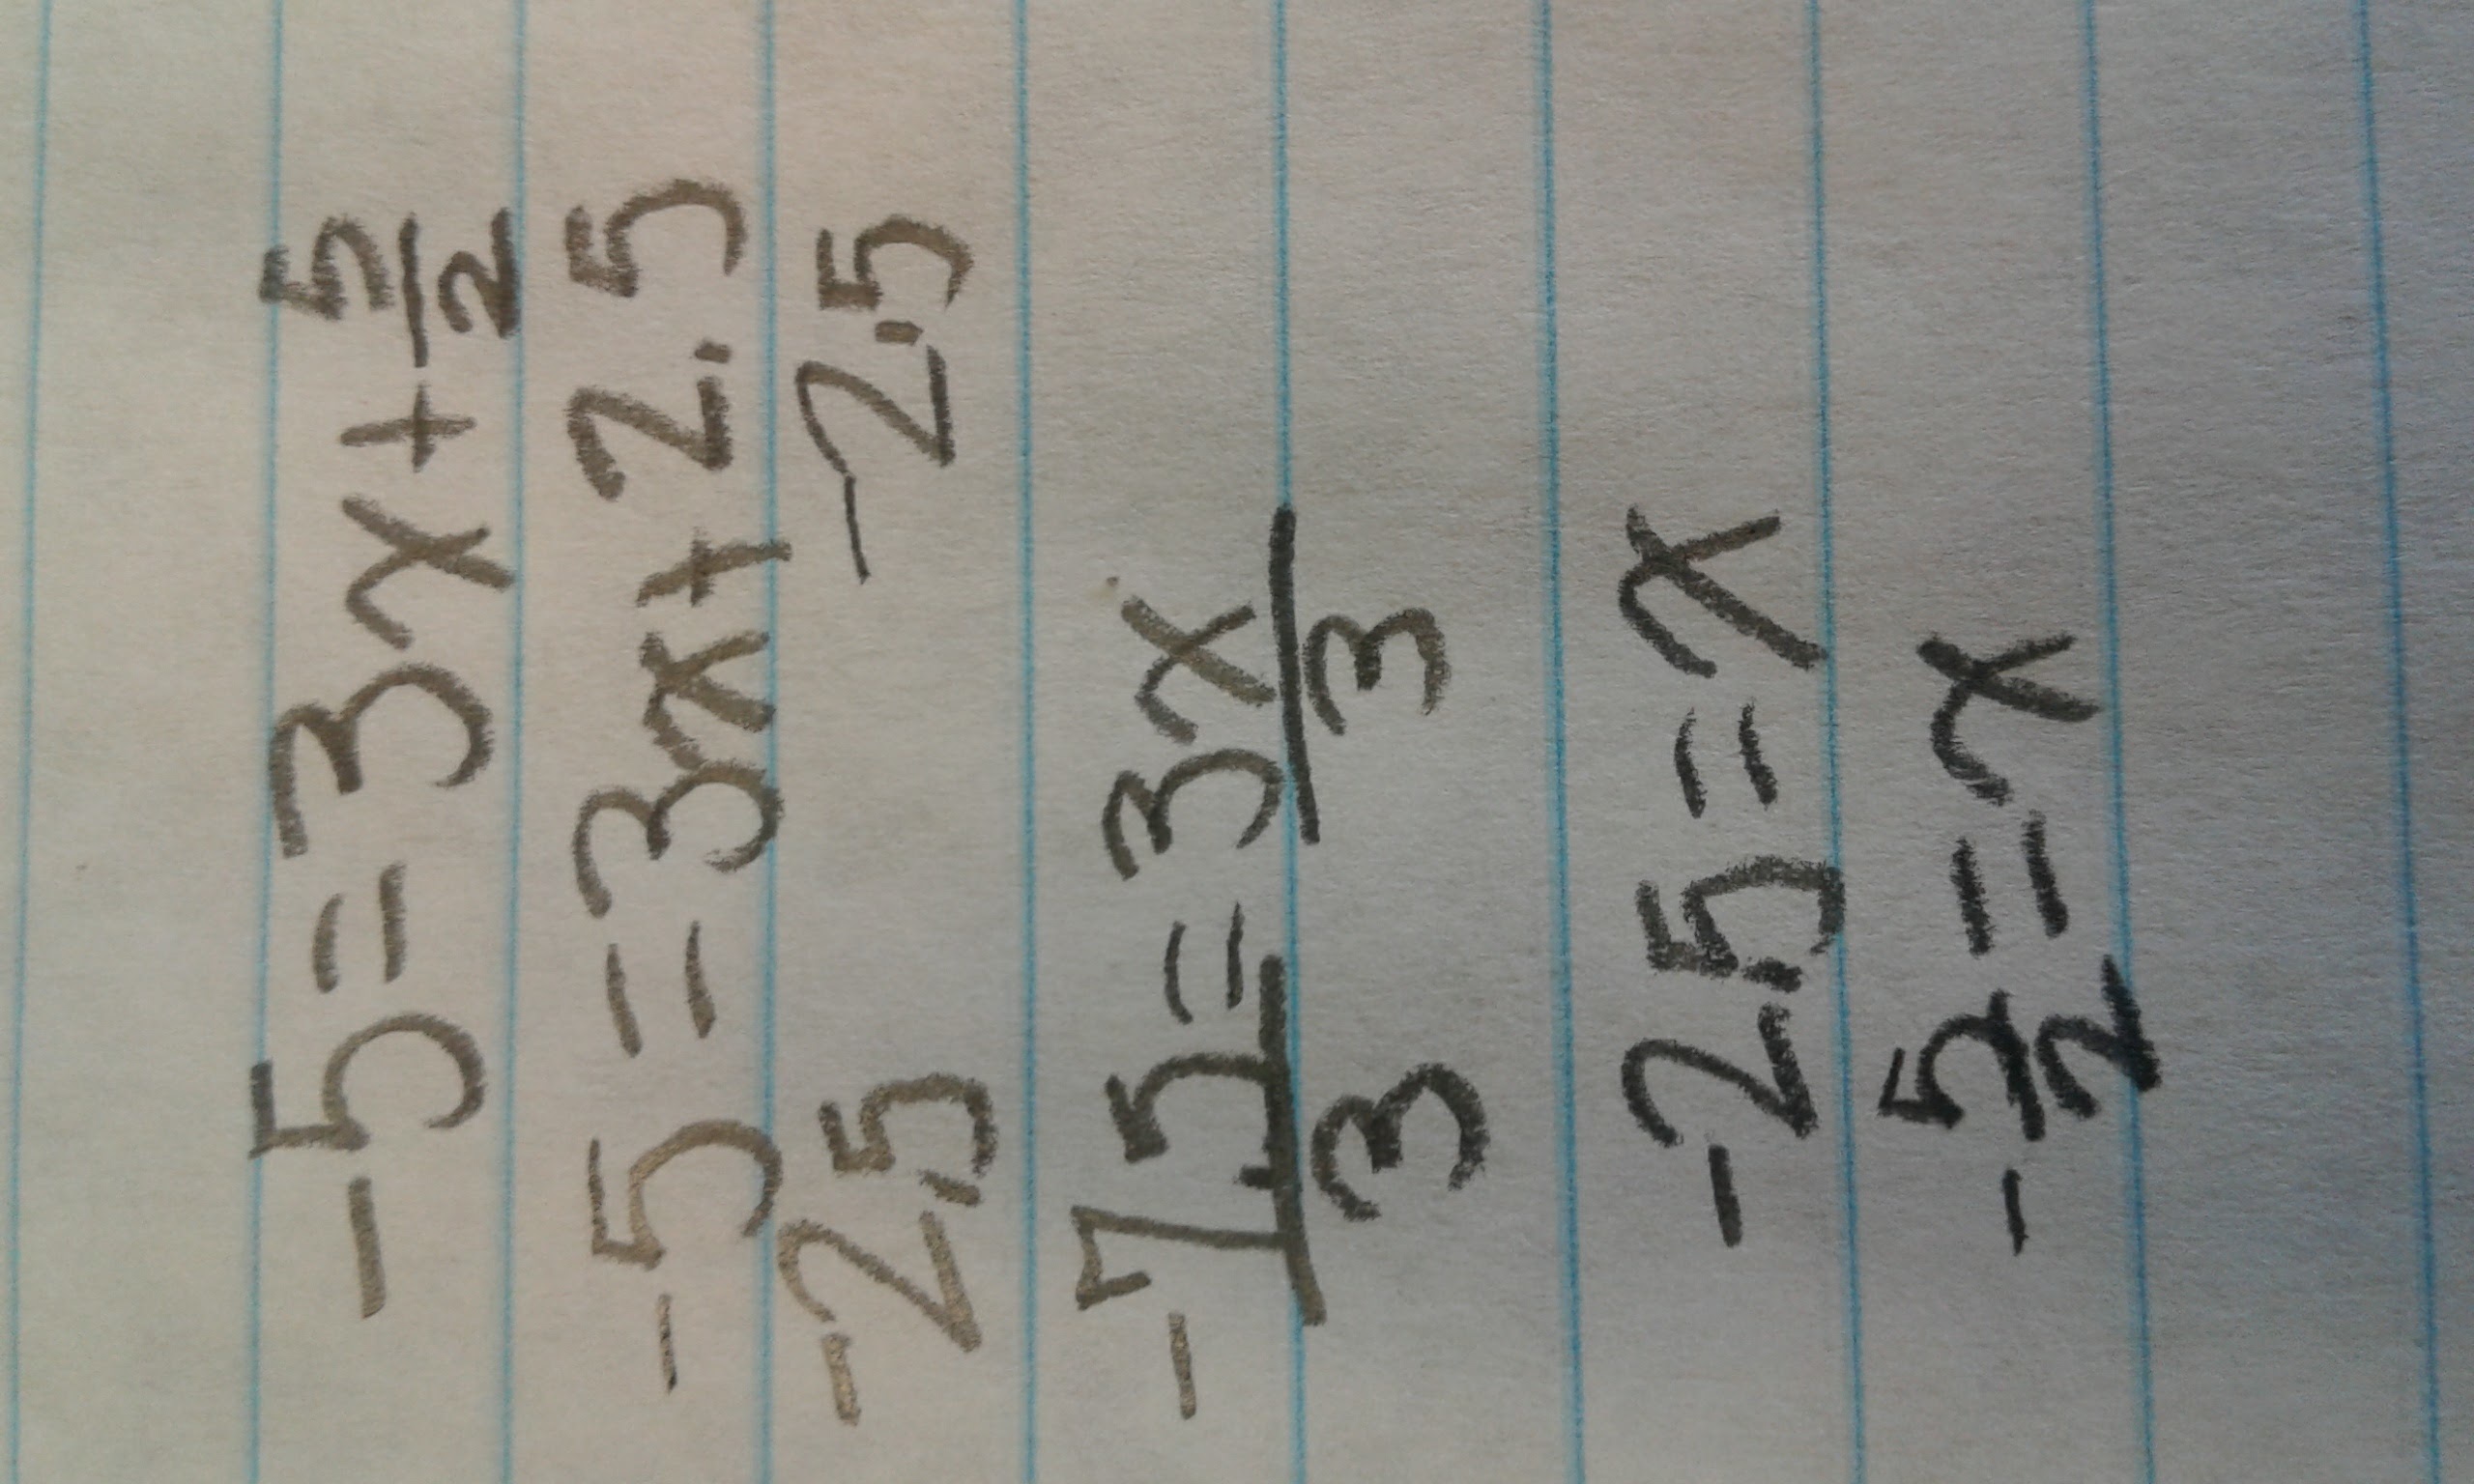 -5=3x+5/2
-5=3x+2.5
-2.5 -2.5
-7.5/3=3x/3
-2.5=x
-5/2=x